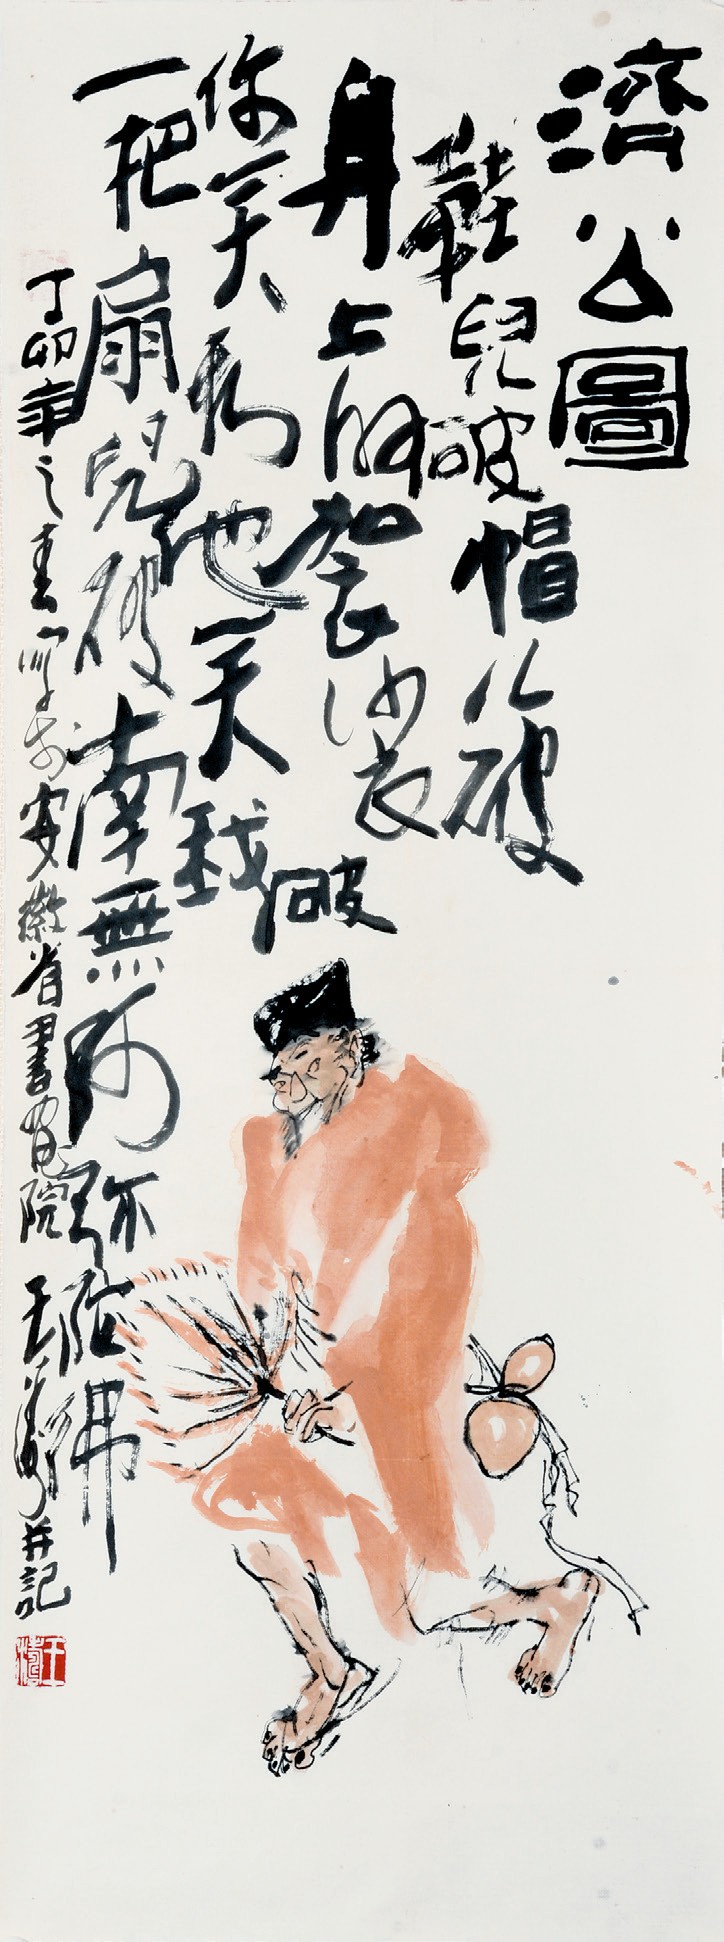 濟公圖
鞋兒破帽儿破
身上的袈裟破
你笑我他笑我
一把扇兒破南無阿彌陀佛
丁卯年之春寫於安徽省書畫院王濤并記